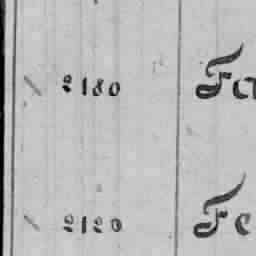 2180 Fa
2120 Fe